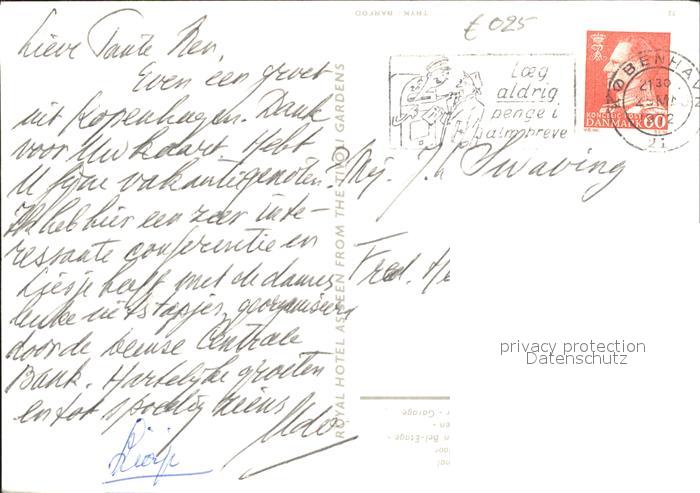 Lieve Tante Nen,
Even een groet
uit Kopenhagen. Dank
voor Uw kaart. Hebt
U fijne vakantiegenoten?
Ik heb hier een zeer inte-
ressante conferentie en
Liesje heeft met de dames
leuke uitstapjes, georganiseerd
door de Deense Centrale
Bank. Hartelijke groeten
en tot spoedig ziens
Liesje
ROYAL HOTEL AS SEEN FROM THE TIVOLI GARDENS
THYK. BARFOD
€ 025
Læg
aldrig
penge i
almbreve
KØBENHAV
2130
KONGELIG POST
DANMARK 60
Mej. J. Swaving
Fred.
privacy protection
Datenschutz
- Garage
n Bel-Etage -